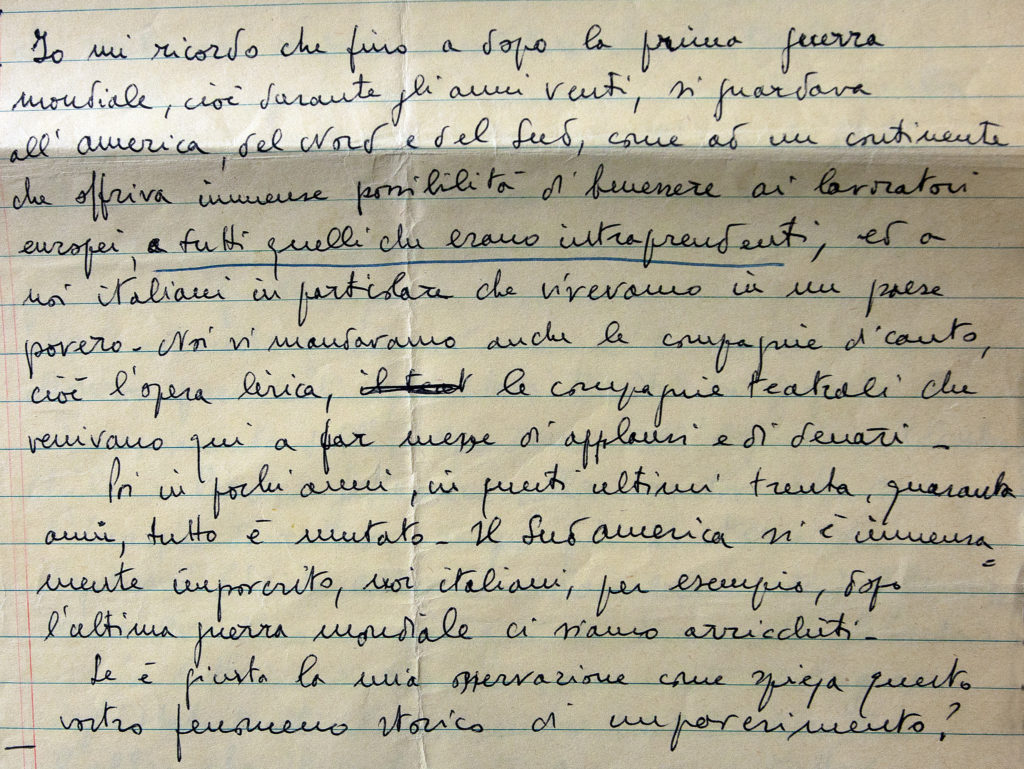 Io mi ricordo che fino a dopo la prima guerra
mondiale, cioè durante gli anni venti, si guardava
all'america, del Nord e del Sud, come ad un continente
che offriva immense possibilità di benessere ai lavoratori
europei, a tutti quelli che erano intraprendenti, ed a
noi italiani in particolare che vivevamo in un paese
povero - Noi vi mandavamo anche le compagnie d'canto,
cioè l'opera lirica, il teat le compagnie teatrali che
venivano qui a far messe di applausi e di denari -
Poi in pochi anni, in questi ultimi trenta, quaranta
anni, tutto è mutato - Il Sud america si è immensa=
mente impoverito, noi italiani, per esempio, dopo
l'ultima guerra mondiale ci siamo arricchiti -
Se è giusta la mia osservazione come spiega questo
vostro fenomeno storico di impoverimento?